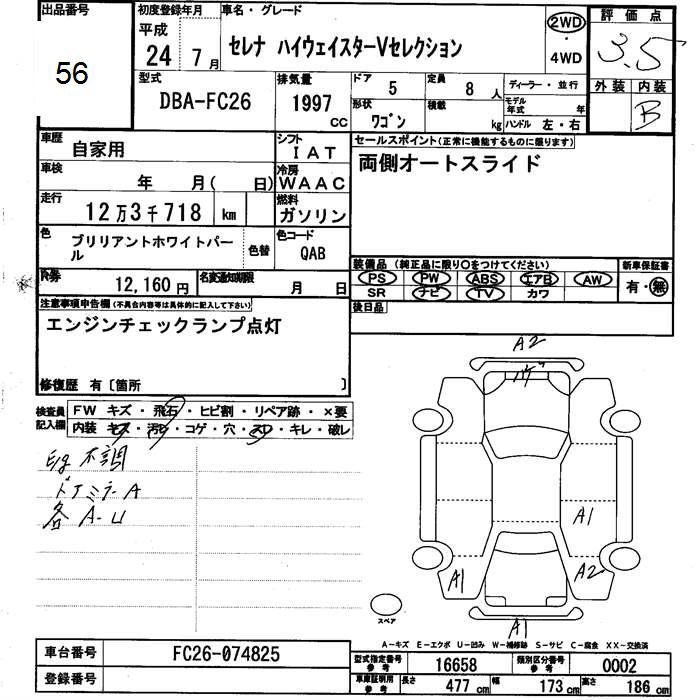 出品番号
56
初度登録年月
平成
24 7月
車名・グレード
セレナ ハイウェイスターVセレクション
2WD
・
4WD
評価点
3.5
外装 内装
B
型式
DBA-FC26
排気量
1997
CC
ドア 5
定員 8人
形状 ワゴン
積載 kg
ディーラー・並行
モデル年式 年
ハンドル 左・右
車歴
自家用
シフト
IAT
車検
年 月(日)
冷房
WAAC
走行
12万3千718 km
燃料
ガソリン
色
ブリリアントホワイトパール
色替
色コード
QAB
R券
12,160円
名変通知期限
月 日
セールスポイント(正常に機能するものに限ります)
両側オートスライド
装備品(純正品に限り○をつけてください)
PS PW ABS エアB AW
SR ナビ TV カワ
新車保証書
有・無
後日品
注意事項申告欄(不具合内容等は具体的に記入して下さい)
エンジンチェックランプ点灯
修復歴 有〔箇所 〕
検査員記入欄
FW キズ・飛石・ヒビ割・リペア跡・×要
内装 キズ・汚レ・コゲ・穴・スレ・キレ・破レ
E/g 不調
ドアミラーA
各A-U
A2
ハゲ
A1
A2
A1
A1
スペア
A-キズ E-エクボ U-凹み W-補修跡 S-サビ C-腐食 XX-交換済
車台番号
FC26-074825
登録番号
型式指定番号参考
16658
類別区分番号参考
0002
車庫証明用参考
長さ 477cm
幅 173cm
高さ 186cm